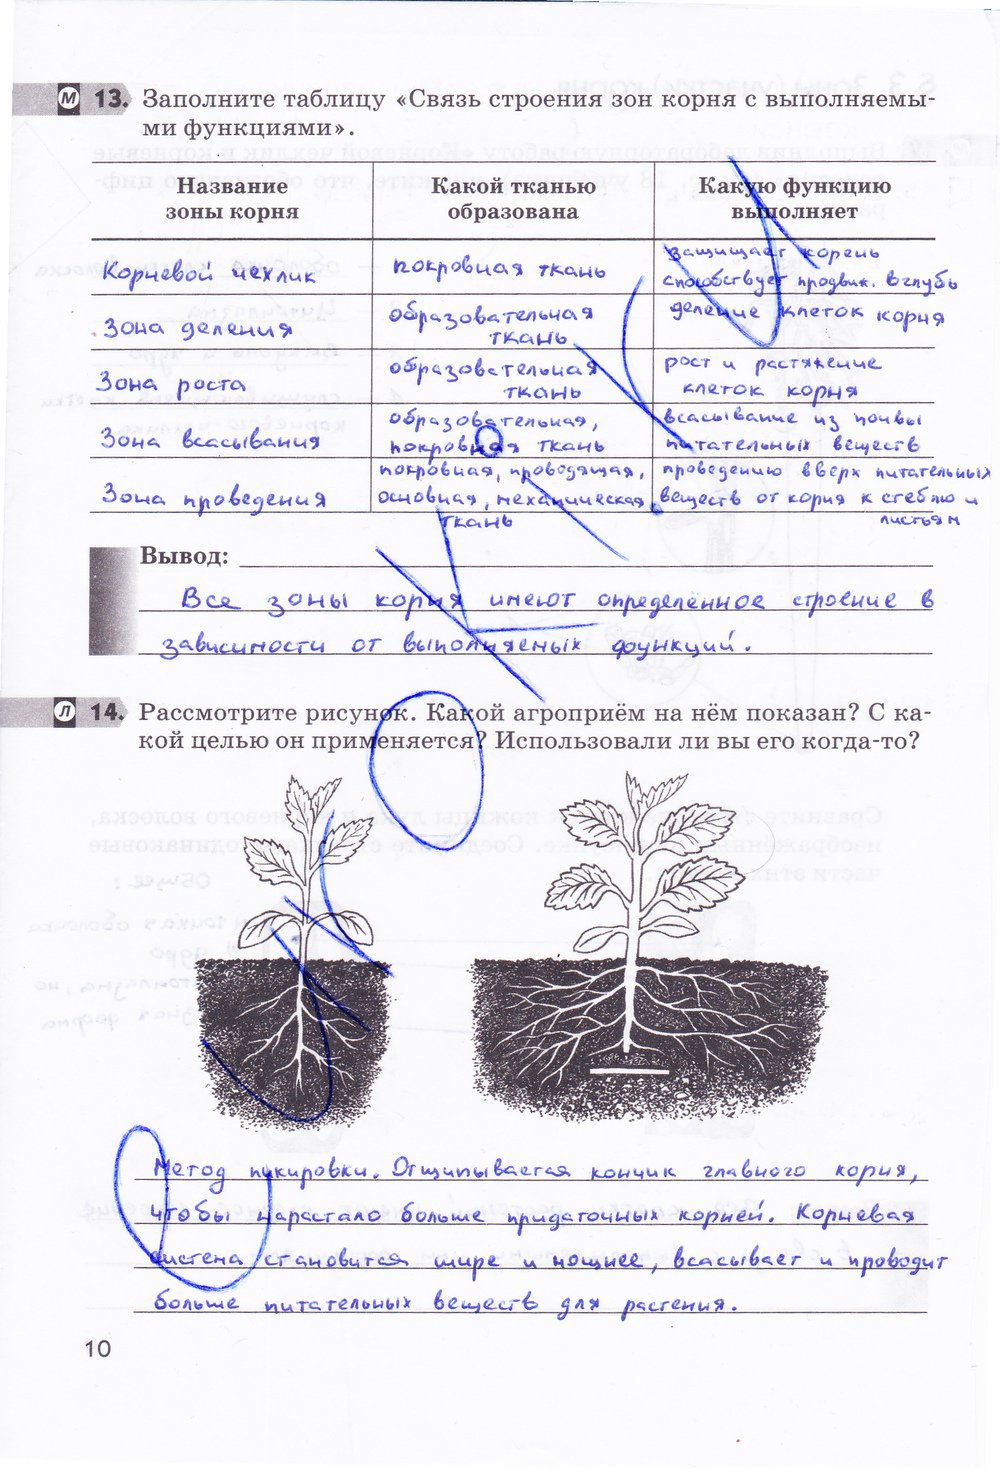 М 13. Заполните таблицу «Связь строения зон корня с выполняемы-
ми функциями».
Название зоны корня | Какой тканью образована | Какую функцию выполняет
Корневой чехлик | покровная ткань | защищает корень способствует продвиж. вглубь
Зона деления | образовательная ткань | деление клеток корня
Зона роста | образовательная ткань | рост и растяжение клеток корня
Зона всасывания | образовательная, покровная ткань | всасывание из почвы питательных веществ
Зона проведения | покровная, проводящая, основная, механическая ткань | проведению вверх питательных веществ от корня к стеблю и листьям
Вывод:
Все зоны корня имеют определённое строение в
зависимости от выполняемых функций.
Л 14. Рассмотрите рисунок. Какой агроприём на нём показан? С ка-
кой целью он применяется? Использовали ли вы его когда-то?
Метод пикировки. Отщипывается кончик главного корня,
чтобы нарастало больше придаточных корней. Корневая
система становится шире и мощнее, всасывает и проводит
больше питательных веществ для растения.
10